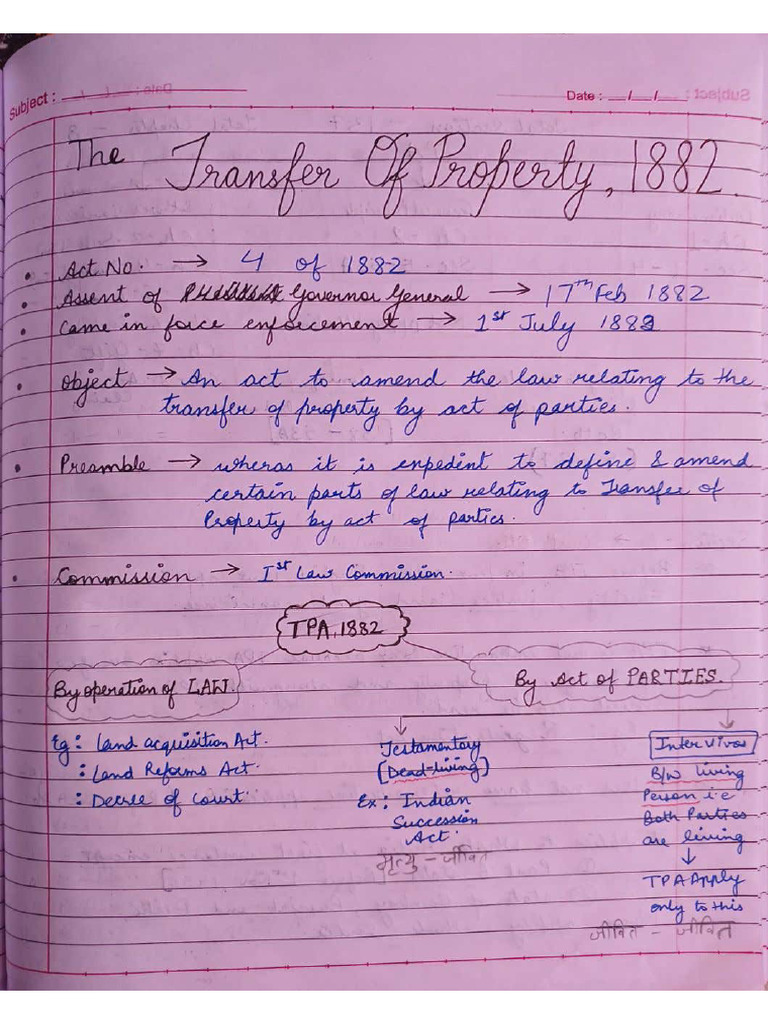 Subject :
Date : __/__/__
The Transfer Of Property, 1882.
• Act No. → 4 of 1882
• Assent of Governor General → 17th Feb 1882
• Came in force enforcement → 1st July 1882
• Object → An act to amend the law relating to the
transfer of property by act of parties.
• Preamble → wheras it is expedient to define & amend
certain parts of law relating to Transfer of
Property by act of parties.
• Commission → Ist Law Commission.
TPA, 1882
By operation of LAW.
By Act of PARTIES.
Eg : Land acquisition Act.
: Land Reforms Act.
: Decree of Court.
Testamentary
(Dead-living)
Ex : Indian
Succession
Act.
मृत्यु - जीवित
Inter Vivos
B/w living
Person i.e
Both Parties
are living
↓
TPA Apply
only to this
जीवित - जीवित